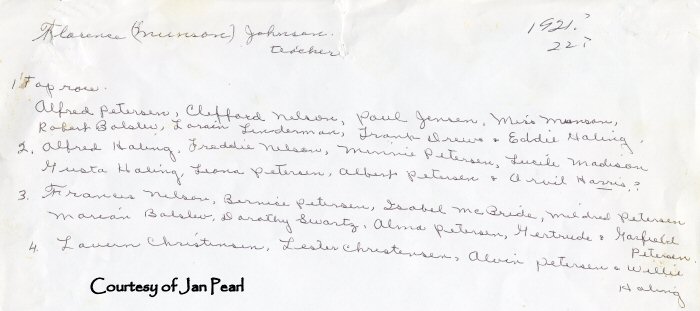 Florence (Munson) Johnson.
teacher
1921?
22?
1 Top row.
Alfred Petersen, Clifford Nelson, Paul Jensen, Miss Munson,
Robert Balslev, Lorain Linderman, Frank Drews & Eddie Haling.
2. Alfred Haling, Freddie Nelson, Minnie Petersen, Lucile Madison
Gusta Haling, Leona Petersen, Albert Petersen & Arvil Harris?
3. Frances Nelson, Bernice Petersen, Isabel McBride, Mildred Petersen
Marian Balslev, Dorathy Swartz, Alma Petersen, Gertrude & Garfield
Petersen.
4. Lavern Christensen, Lester Christensen, Alvin Petersen & Willie
Haling
Courtesy of Jan Pearl